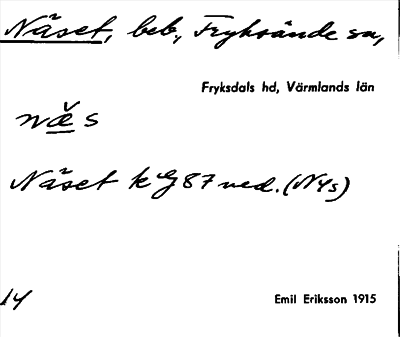 Näset, beb., Fryksände sn,
Fryksdals hd, Värmlands län
næ̆s
Näset k G 87 ned. (N4s)
14
Emil Eriksson 1915